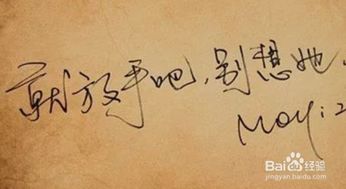 就放手吧,别想她.
May:2
Baidu经验
jingyan.baidu.com